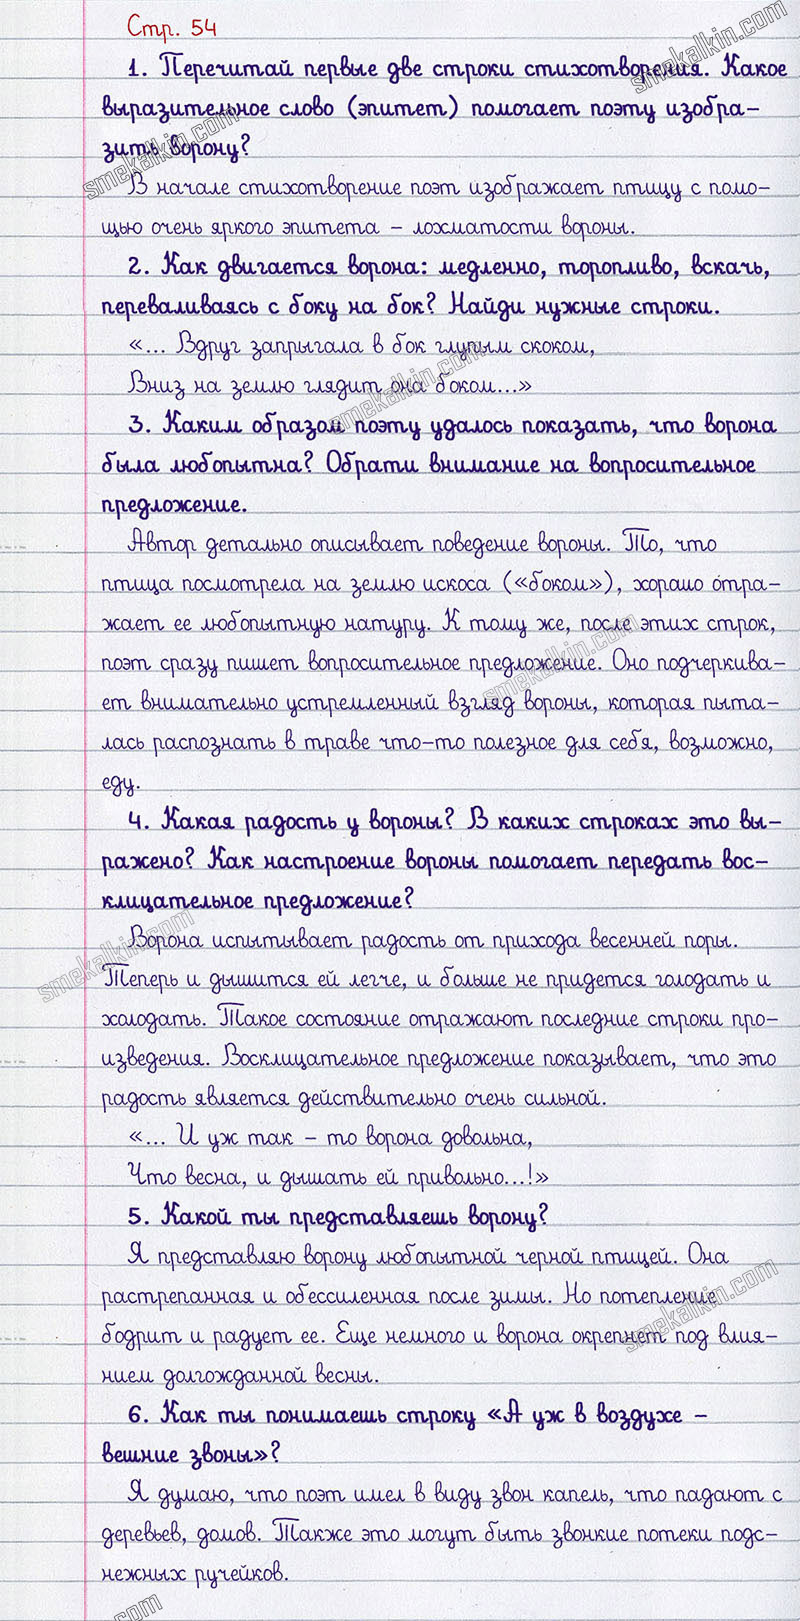 Стр. 54
1. Перечитай первые две строки стихотворения. Какое
выразительное слово (эпитет) помогает поэту изобра-
зить ворону?
В начале стихотворение поэт изображает птицу с помо-
щью очень яркого эпитета – лохматости вороны.
2. Как двигается ворона: медленно, торопливо, вскачь,
переваливаясь с боку на бок? Найди нужные строки.
«... Вдруг запрыгала в бок глупым скоком,
Вниз на землю глядит она боком...»
3. Каким образом поэту удалось показать, что ворона
была любопытна? Обрати внимание на вопросительное
предложение.
Автор детально описывает поведение вороны. То, что
птица посмотрела на землю искоса («боком»), хорошо отра-
жает ее любопытную натуру. К тому же, после этих строк,
поэт сразу пишет вопросительное предложение. Оно подчеркива-
ет внимательно устремленный взгляд вороны, которая пыта-
лась распознать в траве что-то полезное для себя, возможно,
еду.
4. Какая радость у вороны? В каких строках это вы-
ражено? Как настроение вороны помогает передать вос-
клицательное предложение?
Ворона испытывает радость от прихода весенней поры.
Теперь и дышится ей легче, и больше не придется голодать и
холодать. Такое состояние отражают последние строки про-
изведения. Восклицательное предложение показывает, что это
радость является действительно очень сильной.
«... И уж так – то ворона довольна,
Что весна, и дышать ей привольно...!»
5. Какой ты представляешь ворону?
Я представляю ворону любопытной черной птицей. Она
растрепанная и обессиленная после зимы. Но потепление
бодрит и радует ее. Еще немного и ворона окрепнет под влия-
нием долгожданной весны.
6. Как ты понимаешь строку «А уж в воздухе –
вешние звоны»?
Я думаю, что поэт имел в виду звон капель, что падают с
деревьев, домов. Также это могут быть звонкие потеки подс-
нежных ручейков.
smekalkin.com
smekalkin.com
smekalkin.com
smekalkin.com
smekalkin.com
smekalkin.com